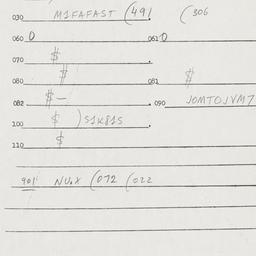 030 M1FAFAST (491 (306
060 0 061 0
070 $
080 $ 081 $
082 $- 090 JOMTOJVM7
100 $ )S1K81S
110 $
901 NU.X (072 (022